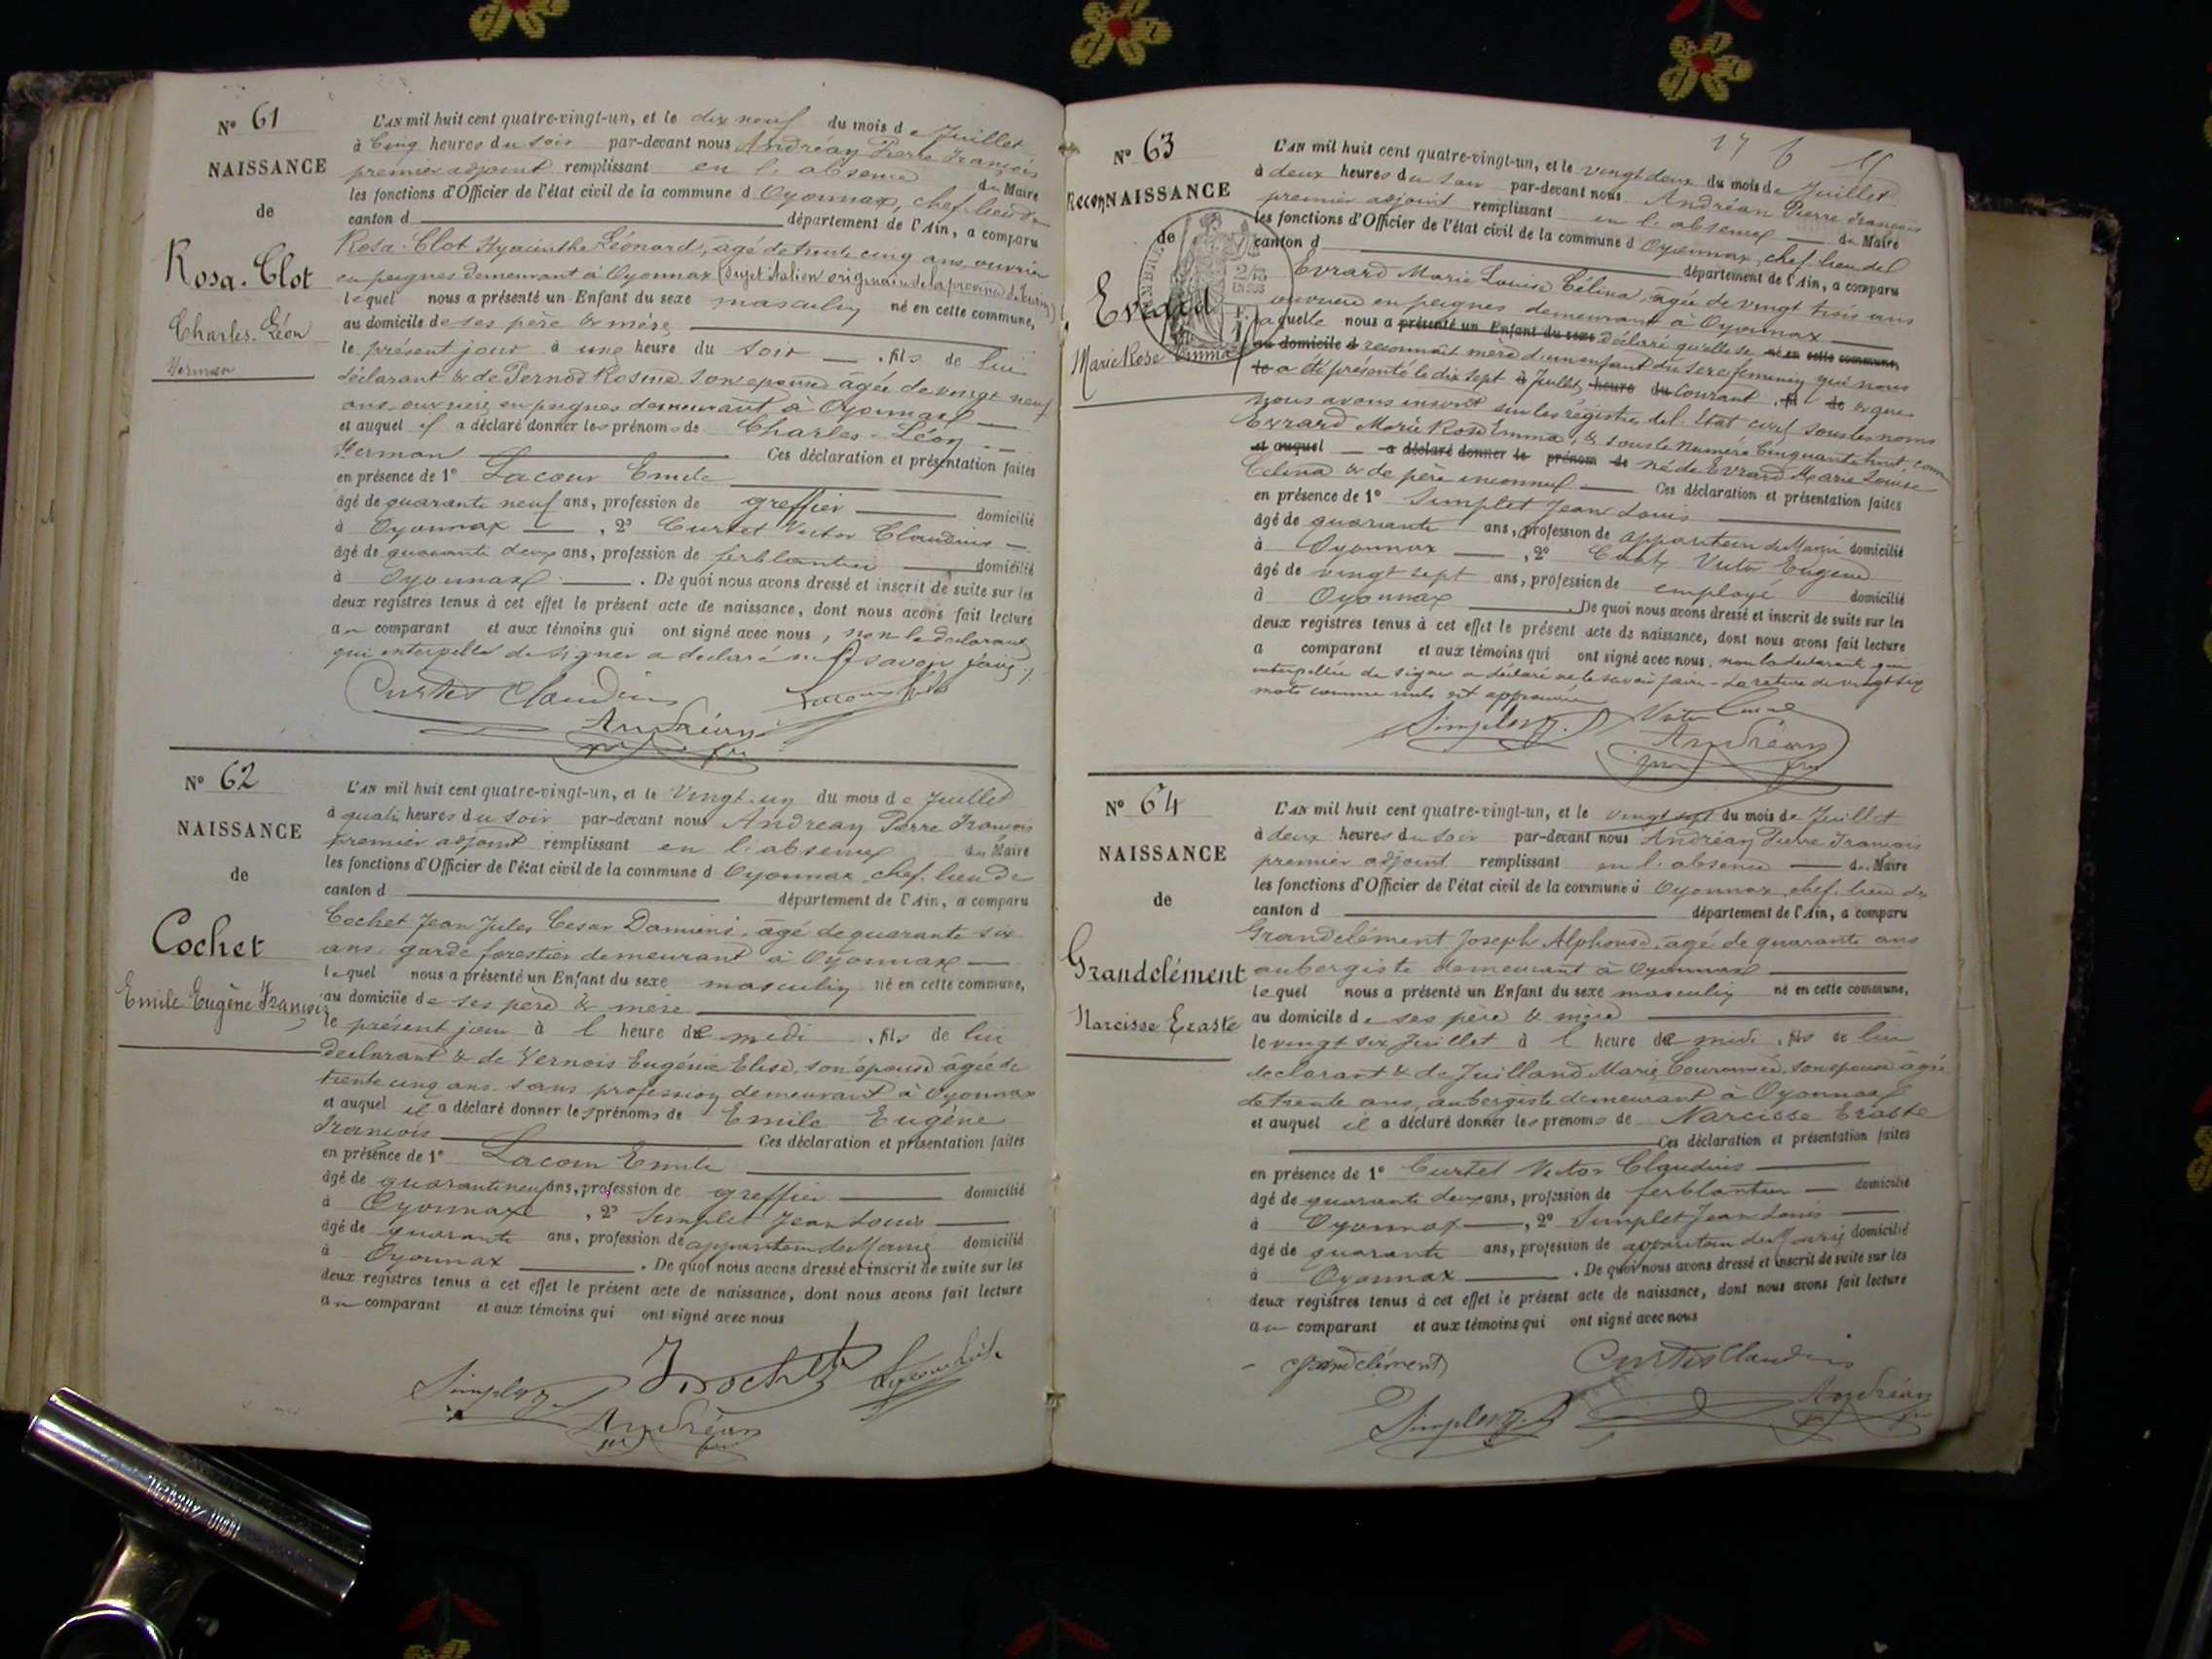 N° 61
NAISSANCE
de
Rosa-Clot
Charles-Léon
Herman
L'AN mil huit cent quatre-vingt-un, et le dix neuf du mois de Juillet
à Cinq heures du soir par-devant nous Andréan Pierre François
premier adjoint remplissant en l'absence du Maire
les fonctions d'Officier de l'état civil de la commune d Oyonnax, chef-lieu de
canton d département de l'Ain, a comparu
Rosa-Clot Hyacinthe Léonard, âgé de trente cinq ans, ouvrier
en peignes demeurant à Oyonnax (sujet italien originaire de la province de Turin)
lequel nous a présenté un Enfant du sexe masculin né en cette commune,
au domicile de ses père & mère
le présent jour à une heure du soir, fils de lui
déclarant & de Pernod Rosine son épouse âgée de vingt neuf
ans, ouvrière en peignes demeurant à Oyonnax
et auquel il a déclaré donner les prénoms de Charles-Léon
Herman Ces déclaration et présentation faites
en présence de 1° Lacour Emile
âgé de quarante neuf ans, profession de greffier domicilié
à Oyonnax, 2° Curtet Victor Claudius
âgé de quarante deux ans, profession de ferblantier domicilié
à Oyonnax. De quoi nous avons dressé et inscrit de suite sur les
deux registres tenus à cet effet le présent acte de naissance, dont nous avons fait lecture
au comparant et aux témoins qui ont signé avec nous, non le déclarant
qui interpellé de signer a déclaré ne savoir
Curtet Claudius
Andréan
N° 62
NAISSANCE
de
Cochet
Emile Eugène François
L'AN mil huit cent quatre-vingt-un, et le Vingt-un du mois de Juillet
à quatre heures du soir par-devant nous Andréan Pierre François
premier adjoint remplissant en l'absence du Maire
les fonctions d'Officier de l'état civil de la commune d Oyonnax, chef-lieu de
canton d département de l'Ain, a comparu
Cochet Jean Jules Cesar Damiens, âgé de quarante six
ans, garde forestier demeurant à Oyonnax
lequel nous a présenté un Enfant du sexe masculin né en cette commune,
au domicile de ses père & mère
le présent jour à l heure de midi, fils de lui
déclarant & de Vernois Eugénie Elise, son épouse âgée de
trente cinq ans sans profession demeurant à Oyonnax
et auquel il a déclaré donner les prénoms de Emile Eugène
François Ces déclaration et présentation faites
en présence de 1° Lacour Emile
âgé de quarante neuf ans, profession de greffier domicilié
à Oyonnax, 2° Simplet Jean Louis
âgé de quarante ans, profession de appariteur de Mairie domicilié
à Oyonnax. De quoi nous avons dressé et inscrit de suite sur les
deux registres tenus à cet effet le présent acte de naissance, dont nous avons fait lecture
au comparant et aux témoins qui ont signé avec nous
Simplet Cochet
Andréan
17 6
N° 63
ReconNAISSANCE
de
Evrard
Marie Rose Emma
L'AN mil huit cent quatre-vingt-un, et le vingt deux du mois de Juillet
à deux heures du soir par-devant nous Andréan Pierre François
premier adjoint remplissant en l'absence du Maire
les fonctions d'Officier de l'état civil de la commune d Oyonnax, chef-lieu de
canton d département de l'Ain, a comparu
Evrard Marie Louise Célina, âgée de vingt trois ans
ouvrière en peignes demeurant à Oyonnax
laquelle nous a présenté un Enfant du sexe déclaré qu'elle se né en cette commune,
au domicile d reconnaît mère d'un enfant du sexe féminin qui nous
le a été présenté le dix sept à Juillet heure du Courant, fil de & que
nous avons inscrit sur les régistres de l'Etat civil sous les noms
Evrard Marie Rose Emma, & sous le Numéro Cinquante huit, comme
et auquel a déclaré donner le prénom de né de Evrard Marie Louise
Célina & de père inconnu Ces déclaration et présentation faites
en présence de 1° Simplet Jean Louis
âgé de quarante ans, profession de appariteur de Mairie domicilié
à Oyonnax, 2° Victor Eugène
âgé de vingt sept ans, profession de employé domicilié
à Oyonnax. De quoi nous avons dressé et inscrit de suite sur les
deux registres tenus à cet effet le présent acte de naissance, dont nous avons fait lecture
a comparant et aux témoins qui ont signé avec nous, non la déclarante qui
interpellée de signer a déclaré ne le savoir faire - La rature de vingt six
mots comme nuls est approuvée
Simplet Victor
Andréan
N° 64
NAISSANCE
de
Grandclément
Narcisse Eraste
L'AN mil huit cent quatre-vingt-un, et le vingt sept du mois de Juillet
à deux heures du soir par-devant nous Andréan Pierre François
premier adjoint remplissant en l'absence du Maire
les fonctions d'Officier de l'état civil de la commune d Oyonnax, chef-lieu de
canton d département de l'Ain, a comparu
Grandclément Joseph Alphonse, âgé de quarante ans
aubergiste demeurant à Oyonnax
lequel nous a présenté un Enfant du sexe masculin né en cette commune,
au domicile de ses père & mère
le vingt six Juillet à l heure de midi, fils de lui
déclarant & de Juilland Marie Couronnée, son épouse âgée
de trente ans, aubergiste demeurant à Oyonnax
et auquel il a déclaré donner les prénoms de Narcisse Eraste
Ces déclaration et présentation faites
en présence de 1° Curtet Victor Claudius
âgé de quarante deux ans, profession de ferblantier domicilié
à Oyonnax, 2° Simplet Jean Louis
âgé de quarante ans, profession de appariteur de Mairie domicilié
à Oyonnax. De quoi nous avons dressé et inscrit de suite sur les
deux registres tenus à cet effet le présent acte de naissance, dont nous avons fait lecture
au comparant et aux témoins qui ont signé avec nous
Grandclément Curtet Claudius
Simplet Andréan